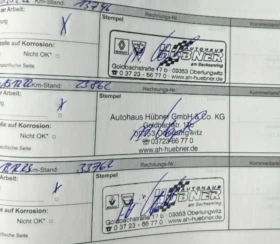 Km-Stand: 15796 Rechnungs-Nr.
er Arbeit: Stempel
x
AUTOHAUS
HÜBNER
am Sachsenring
Goldbachstraße 09353 Oberlungwitz
☎ 0 37 23 - 66 77 0
www.ah-huebner.de
eile auf Korrosion:
Nicht OK*
ezifische Seite
Km-Stand: 23862 Rechnungs-Nr.
Stempel
x
Autohaus Hübner GmbH & Co. KG
Goldbachstr.
09353 Oberlungwitz
03723/66 77 0
www.ah-huebner.de
auf Korrosion:
Nicht OK*
ezifische Seite
Km-Stand: 33762 Rechnungs-Nr.
Arbeit: Stempel
x
AUTOHAUS
HÜBNER
am Sachsenring
09353 Oberlungwitz
☎ 0 37 23 - 66 77 0
www.ah-huebner.de
auf Korrosion:
Nicht OK*
Seite